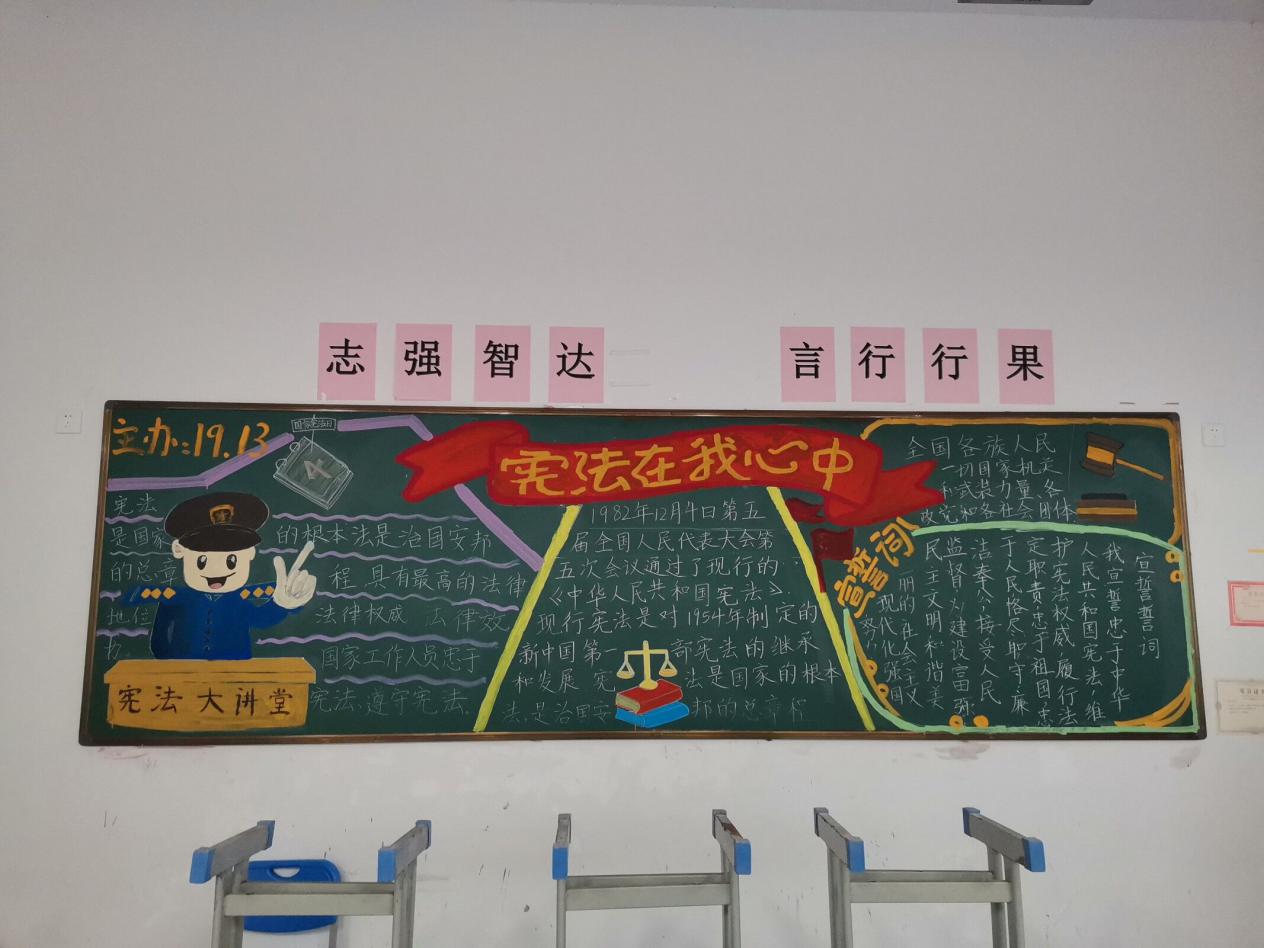 志强智达
言行行果
主办:19.13
国家宪法日
宪法在我心中
宪法
是国家的根本法是治国安邦
的总章程,具有最高的法律
地位 法律权威 法律效
力.
国家工作人员忠于
宪法、遵守宪法.
宪法大讲堂
1982年12月4日第五
届全国人民代表大会第
五次会议通过了现行的
《中华人民共和国宪法》.
现行宪法是对1954年制定的
新中国第一部宪法的继承
和发展 宪法是国家的根本
法,是治国安邦的总章程
全国各族人民
一切国家机关
和武装力量、各
政党和各社会团体
宣誓词
宣誓誓词
我宣誓忠于中华
人民共和国宪法,维
护宪法权威,履行法
定职责,忠于祖国、忠
于人民,恪尽职守、廉
洁奉公,接受人民
监督,为建设富强
民主文明和谐美
丽的社会主义
现代化强国
努力